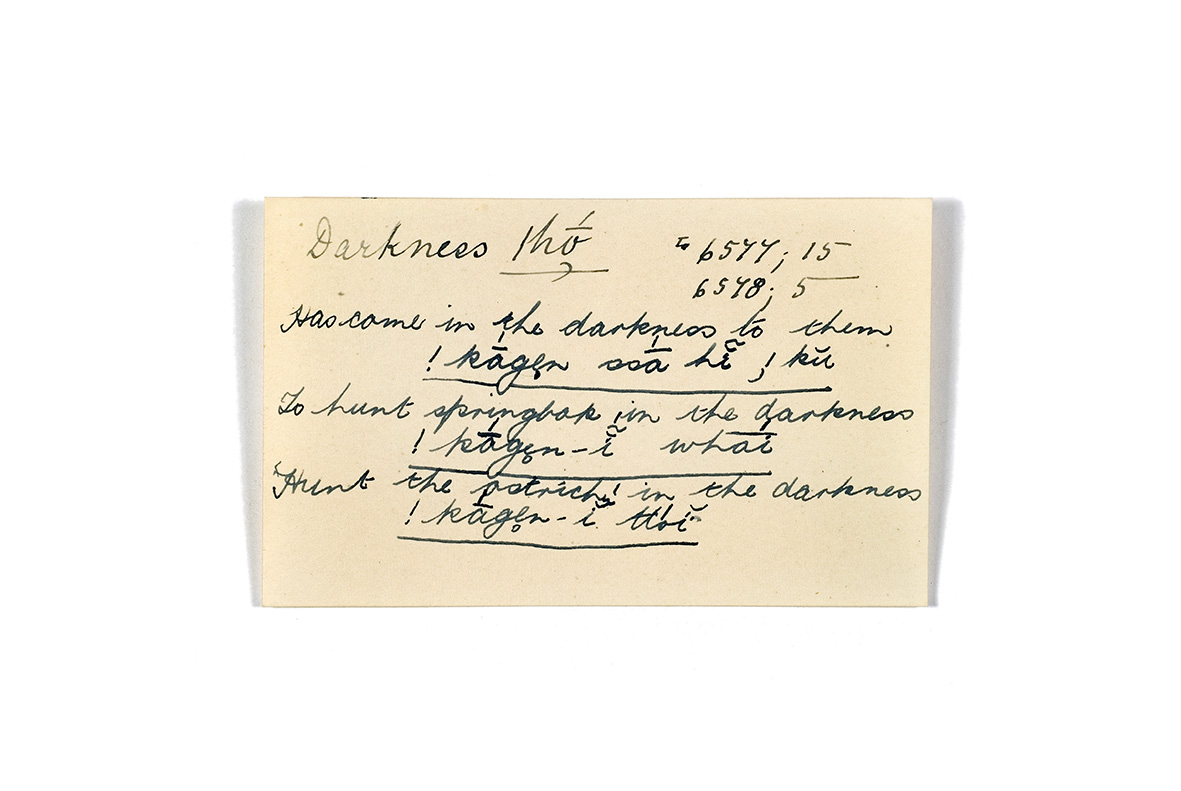 Darkness |hó̄ To 6577; 15
6578; 5
Has come in the darkness to them
! kā́gęn ssā́ hĭ̃ ! kŭ
To hunt springbok in the darkness
! kā́gęn-ĭ̃ whāī
Hunt the ostrich in the darkness
! kā́gęn-ĭ